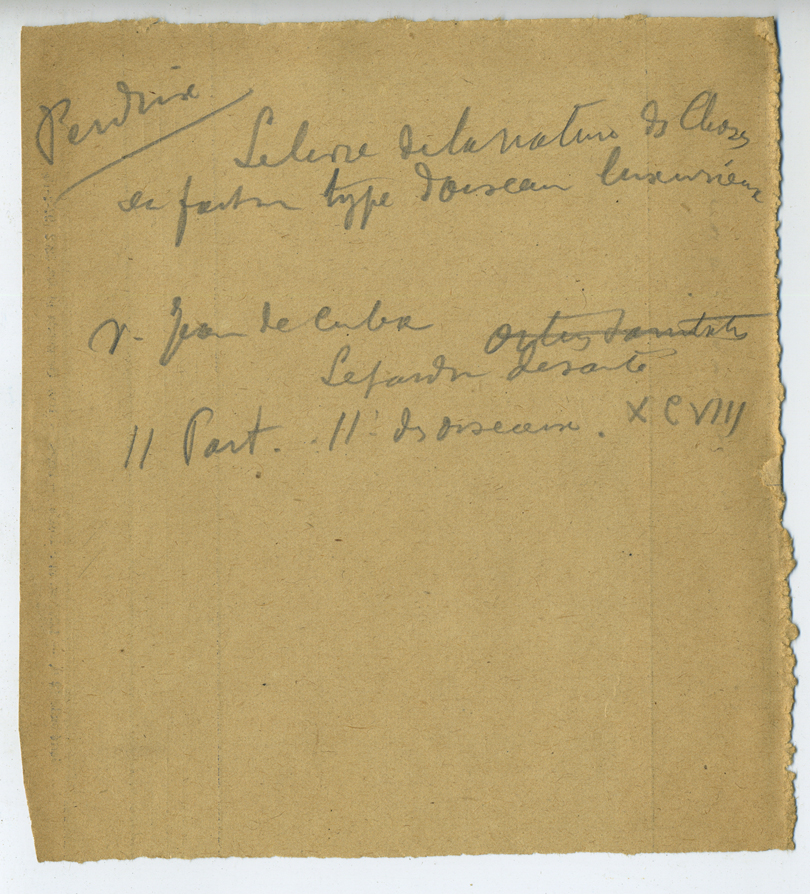 Perdrix
Le livre de la nature ds Choses
en fait un type d'oiseau luxurieux
v. Jean de Cuba ortus sanitatis
Le jardin de santé
II Part. II ds oiseaux. XCVIII